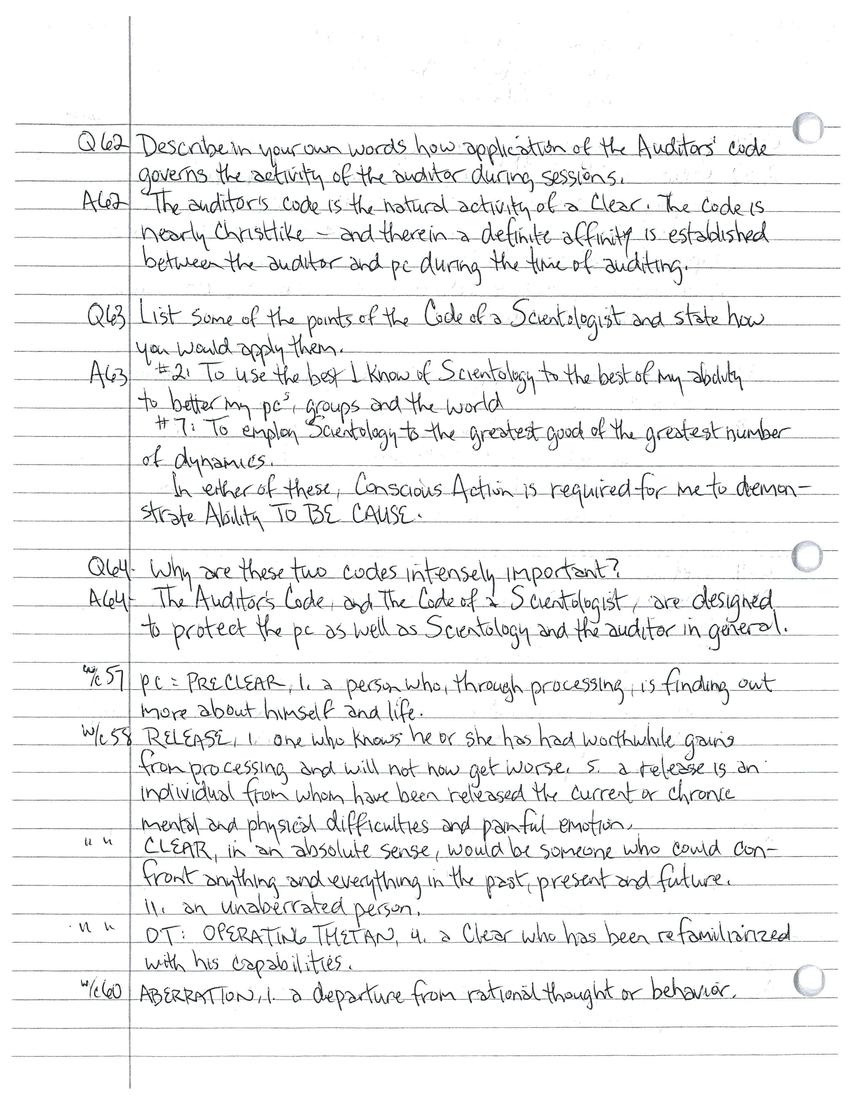 Q62 Describe in your own words how application of the Auditors' code
governs the activity of the auditor during sessions.
A62 The auditor's code is the natural activity of a Clear. The code is
nearly Christlike – and therein a definite affinity is established
between the auditor and pc during the time of auditing.
Q63 List some of the points of the Code of a Scientologist and state how
you would apply them.
A63 #2: To use the best I know of Scientology to the best of my ability
to better my pcs, groups and the world
#7: To employ Scientology to the greatest good of the greatest number
of dynamics.
In either of these, Conscious Action is required for me to demon-
strate Ability TO BE CAUSE.
Q64- Why are these two codes intensely important?
A64- The Auditor's Code, and The Code of a Scientologist, are designed
to protect the pc as well as Scientology and the auditor in general.
w/c 57 pc = PRECLEAR, 1. a person who, through processing, is finding out
more about himself and life.
w/c 58 RELEASE, 1. one who knows he or she has had worthwhile gains
from processing and will not now get worse. 5. a release is an
individual from whom have been released the current or chronic
mental and physical difficulties and painful emotion.
" " CLEAR, in an absolute sense, would be someone who could con-
front anything and everything in the past, present and future.
11. an unaberrated person.
" " OT: OPERATING THETAN, 4. a Clear who has been refamiliarized
with his capabilities.
w/c 60 ABERRATION, 1. a departure from rational thought or behavior.